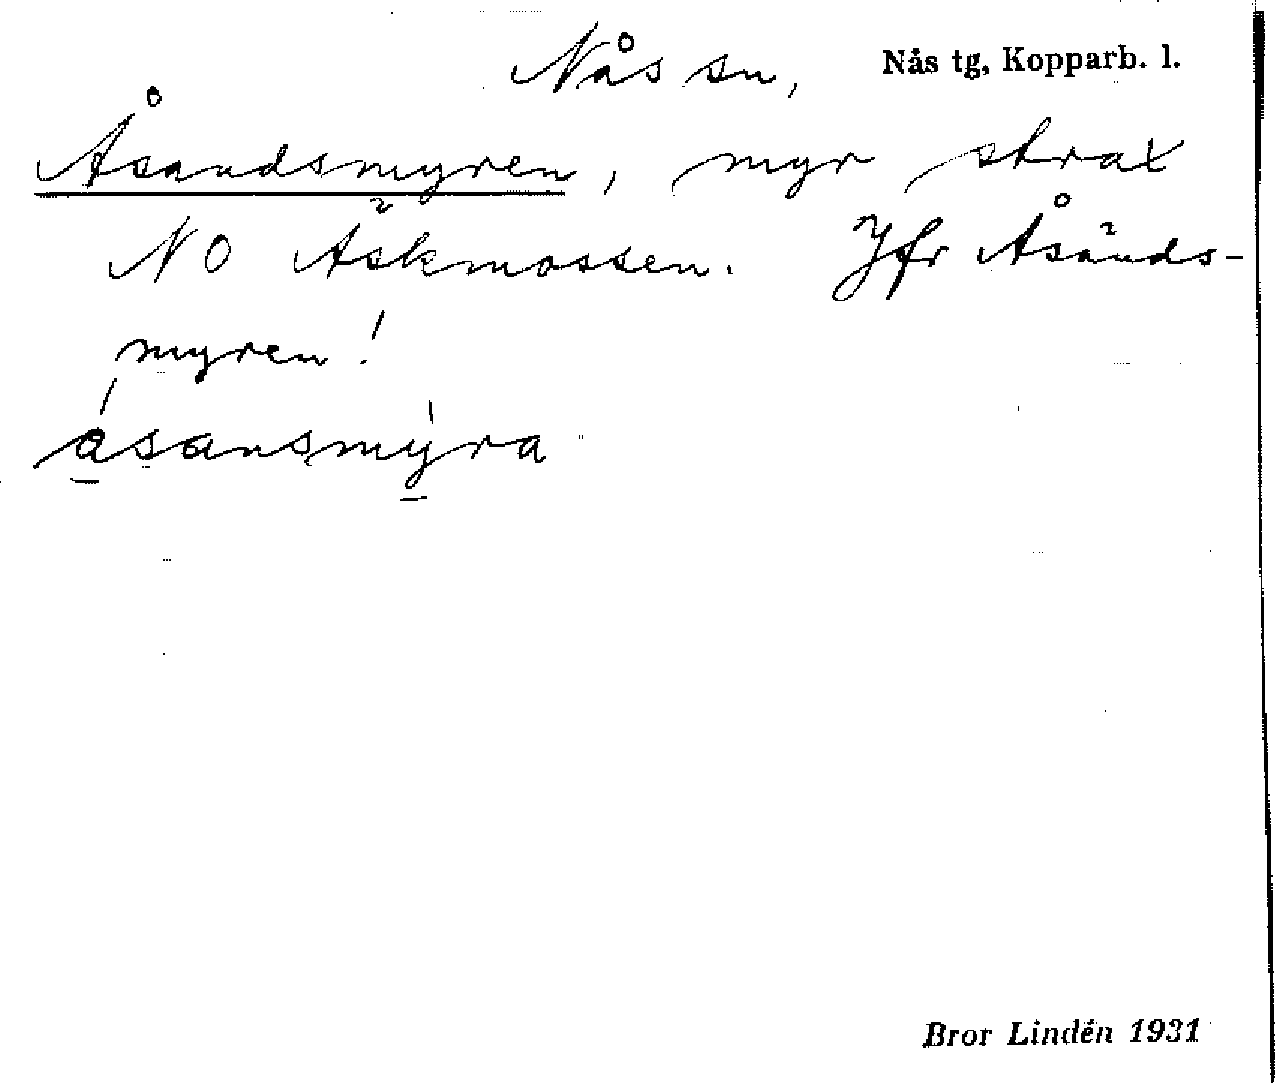 Nås sn, Nås tg, Kopparb. l.
Åsandsmyren, myr strax
NO Äskmossen. Jfr Åsänds-
myren!
åsansmýra
Bror Lindén 1931